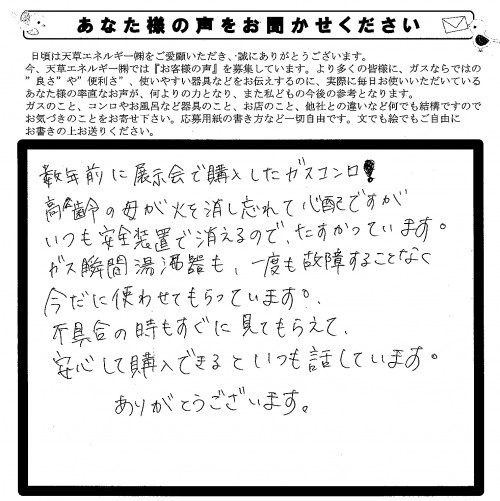 あなた様の声をお聞かせください
日頃は天草エネルギー㈱をご愛顧いただき、誠にありがとうございます。
今、天草エネルギー㈱では『お客様の声』を募集しています。より多くの皆様に、ガスならではの
”良さ”や”便利さ”、使いやすい器具などをお伝えするのに、実際に毎日お使いいただいている
あなた様の率直なお声が、何よりの力となり、また私どもの今後の参考となります。
ガスのこと、コンロやお風呂など器具のこと、お店のこと、他社との違いなど何でも結構ですので
お気づきのことをお寄せ下さい。応募用紙の書き方など一切自由です。文でも絵でもご自由に
お書きの上お送りください。
数年前に展示会で購入したガスコンロ!
高齢の母が火を消し忘れて心配ですが
いつも安全装置で消えるので、たすかっています。
ガス瞬間湯沸器も、一度も故障することなく
今だに使わせてもらっています。
不具合の時もすぐに見てもらえて、
安心して購入できるといつも話しています。
ありがとうございます。